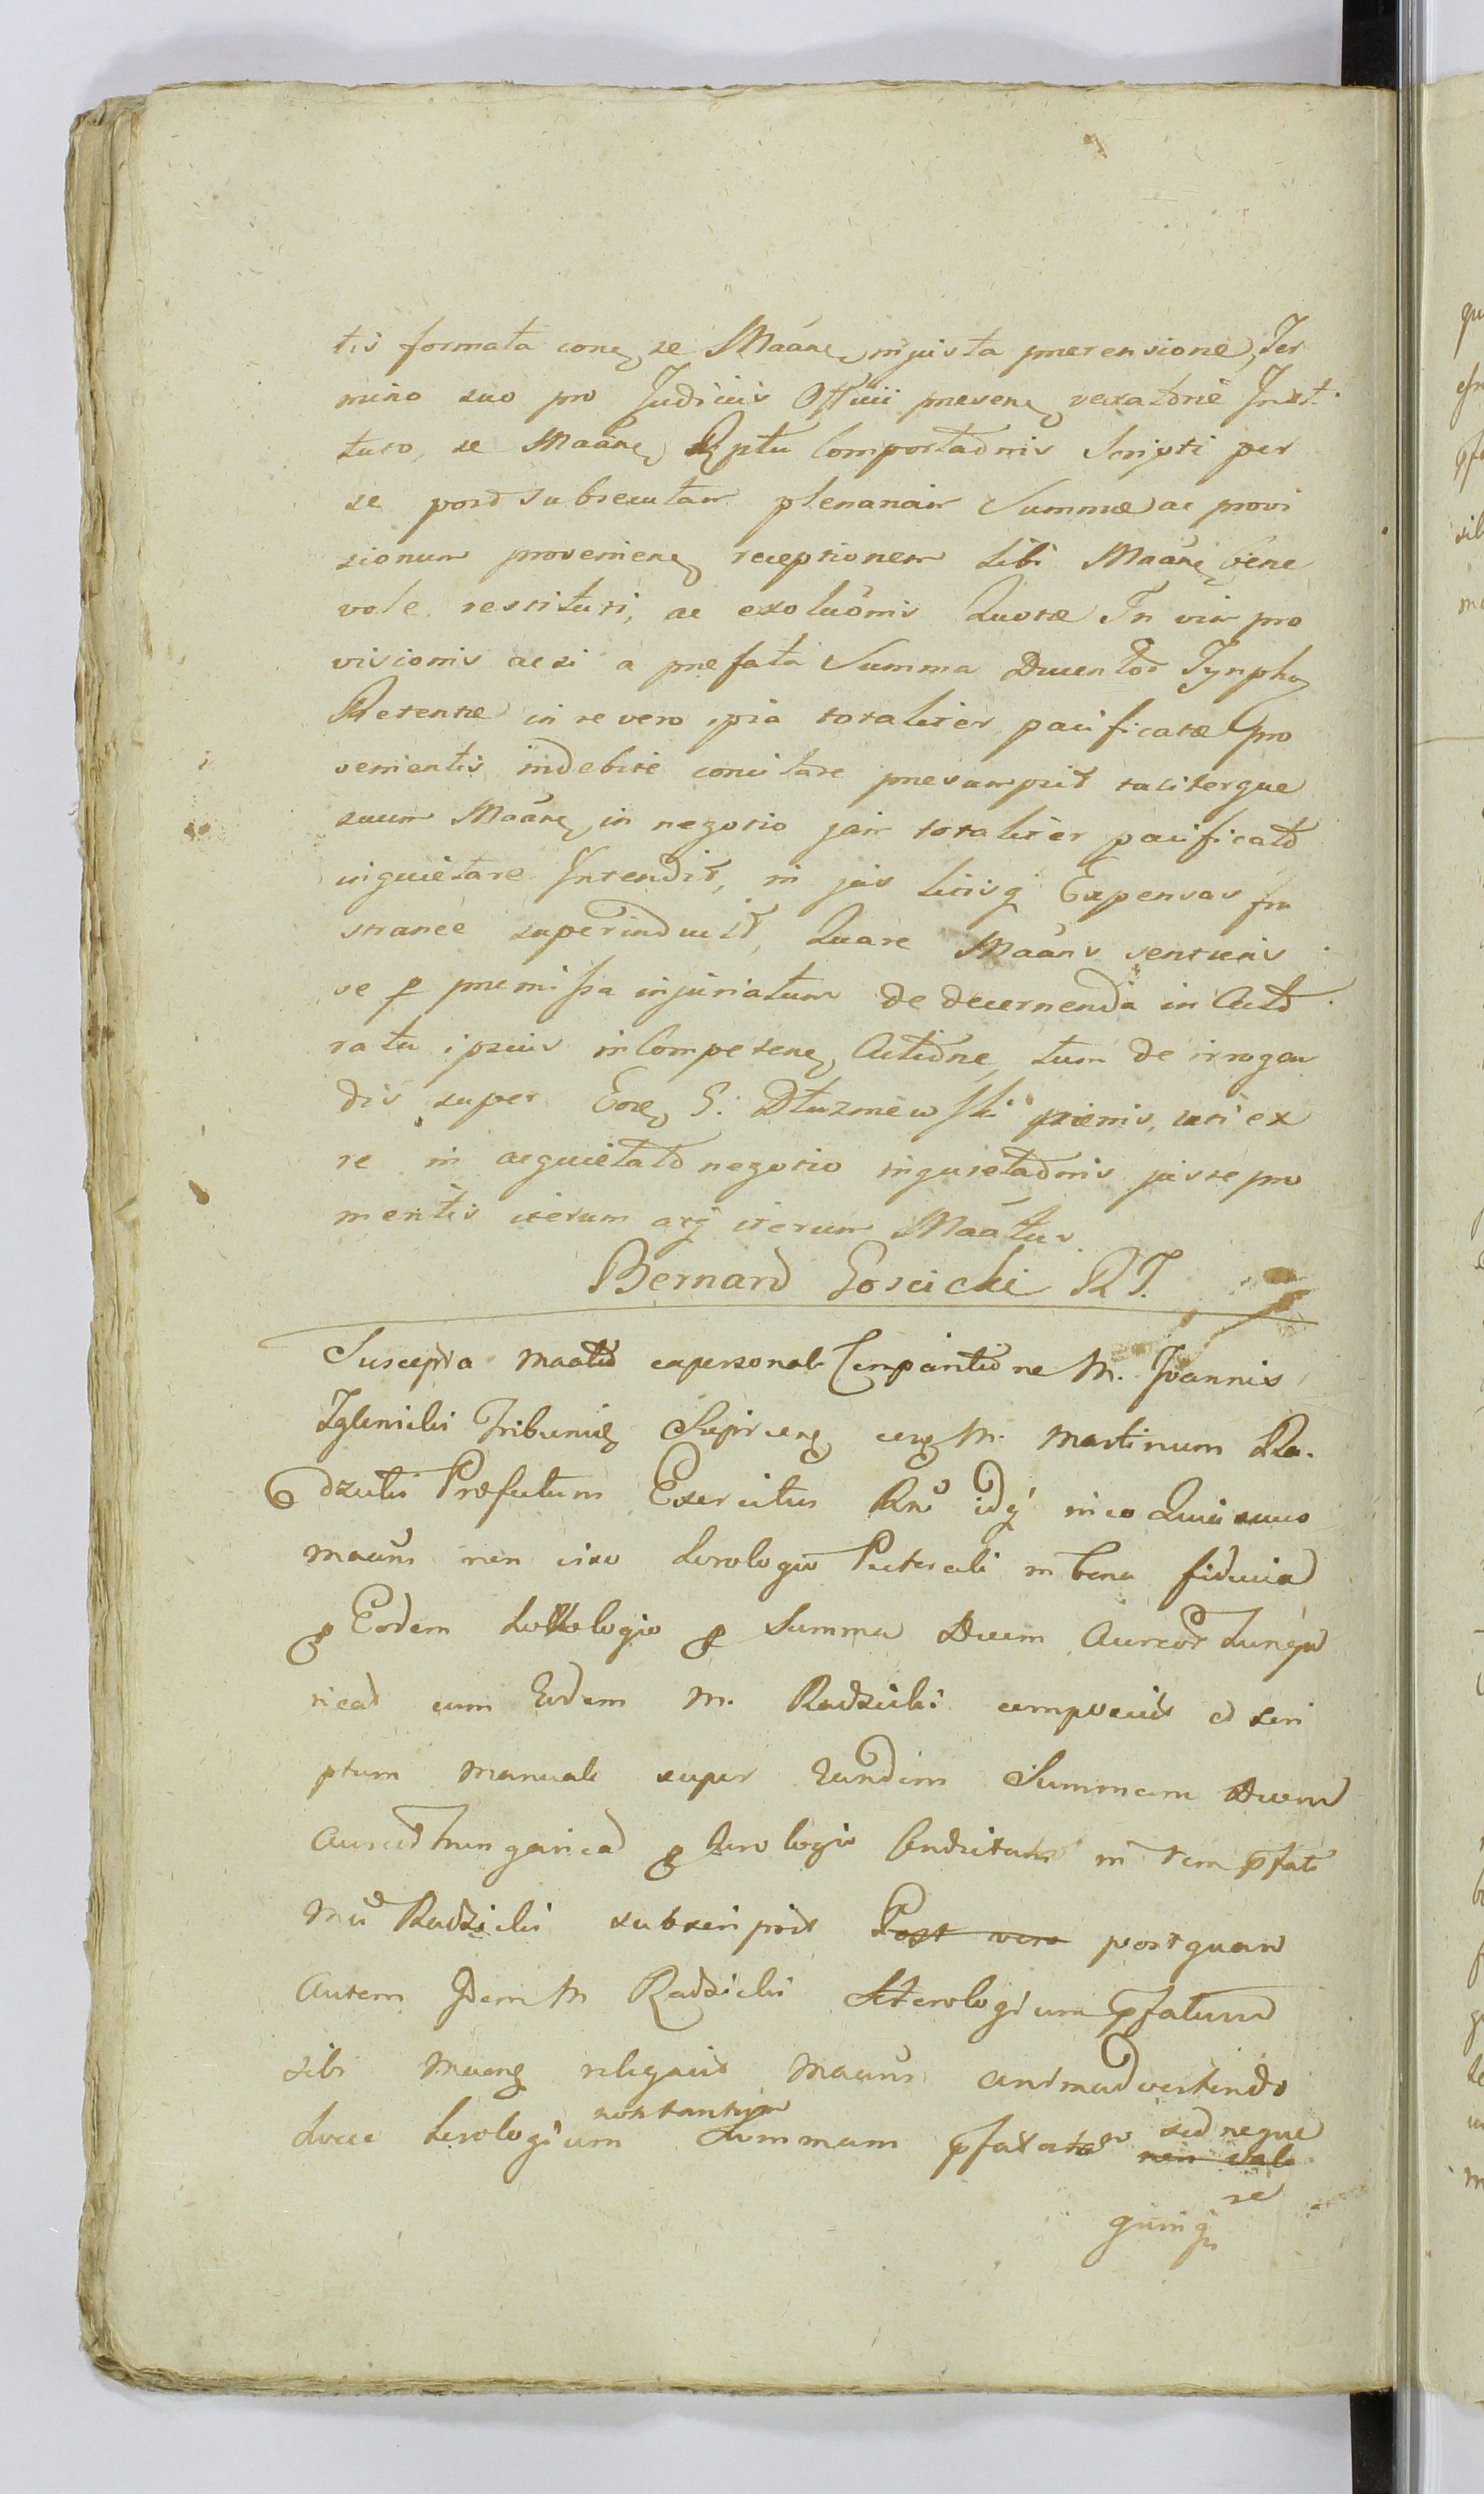 tis formata conẽ se Maãnẽ injusta prætensione, Ter
mino suo pro Judiciis Offcii presenẽ vexatorie Insti
tuto, se Maãnẽ Rptu Comportaõnis Scripti per
se post subsecutam plenariam Summæ ac provi
sionum provenienẽ receptionem sibi Maãnẽ bene
vole restituti, ac exoluõnis Quotæ In vim pro
visionis acsi a præfata Summa Ducentor Tynphoȝ
Retentæ in re vero ipsa totaliter pacificatæ pro
venientis indebite concitare præsumpsit taliterque
suum Maãnẽ in negotio jam totaliter pacificato
inquietare Intendit, in jus litisq Expensas fru
stranee superinduxit, Quare Maãns sentiens
se p præmissa injuriatum de decernenda in Acto
ratu ipsius inCompetenẽ Actione, tum de irrogan
dis super Eodẽ G. Dłuzniewski pænis, uti ex
re in acquietato negotio inquietaõnis juste pro
meritis iterum atq iterum Maãtur.
Bernard Goscicki RT.
Suscepta Maatio expersonali Compariitione M. Joannis
Zglinicki Tribunidẽ Sieprcenẽ cenẽ M. Martinum Ra.
dzicki Præfectum Exercitus Rni idq in eo Quia suuo
maãns non viso Horologio Pectorali in bona fiducia
p Eodem Horologio p Summa Decem Aureor Hunga
ricad cum Eodem M. Radzicki composuit et scri
ptum manuale super Eandem Summam Decem
Aureor hungaricad p Horologio Conscriptam in rem pfati
Mci Radzicki subscripsit Post vero postquam
Autem Idem M Radzicki Horologium pfatum
sibi Maanẽ relegavit Maans animadvertendo
Hocce Horologium non tantum Summam pfatam non vale sed neque
re
quinq